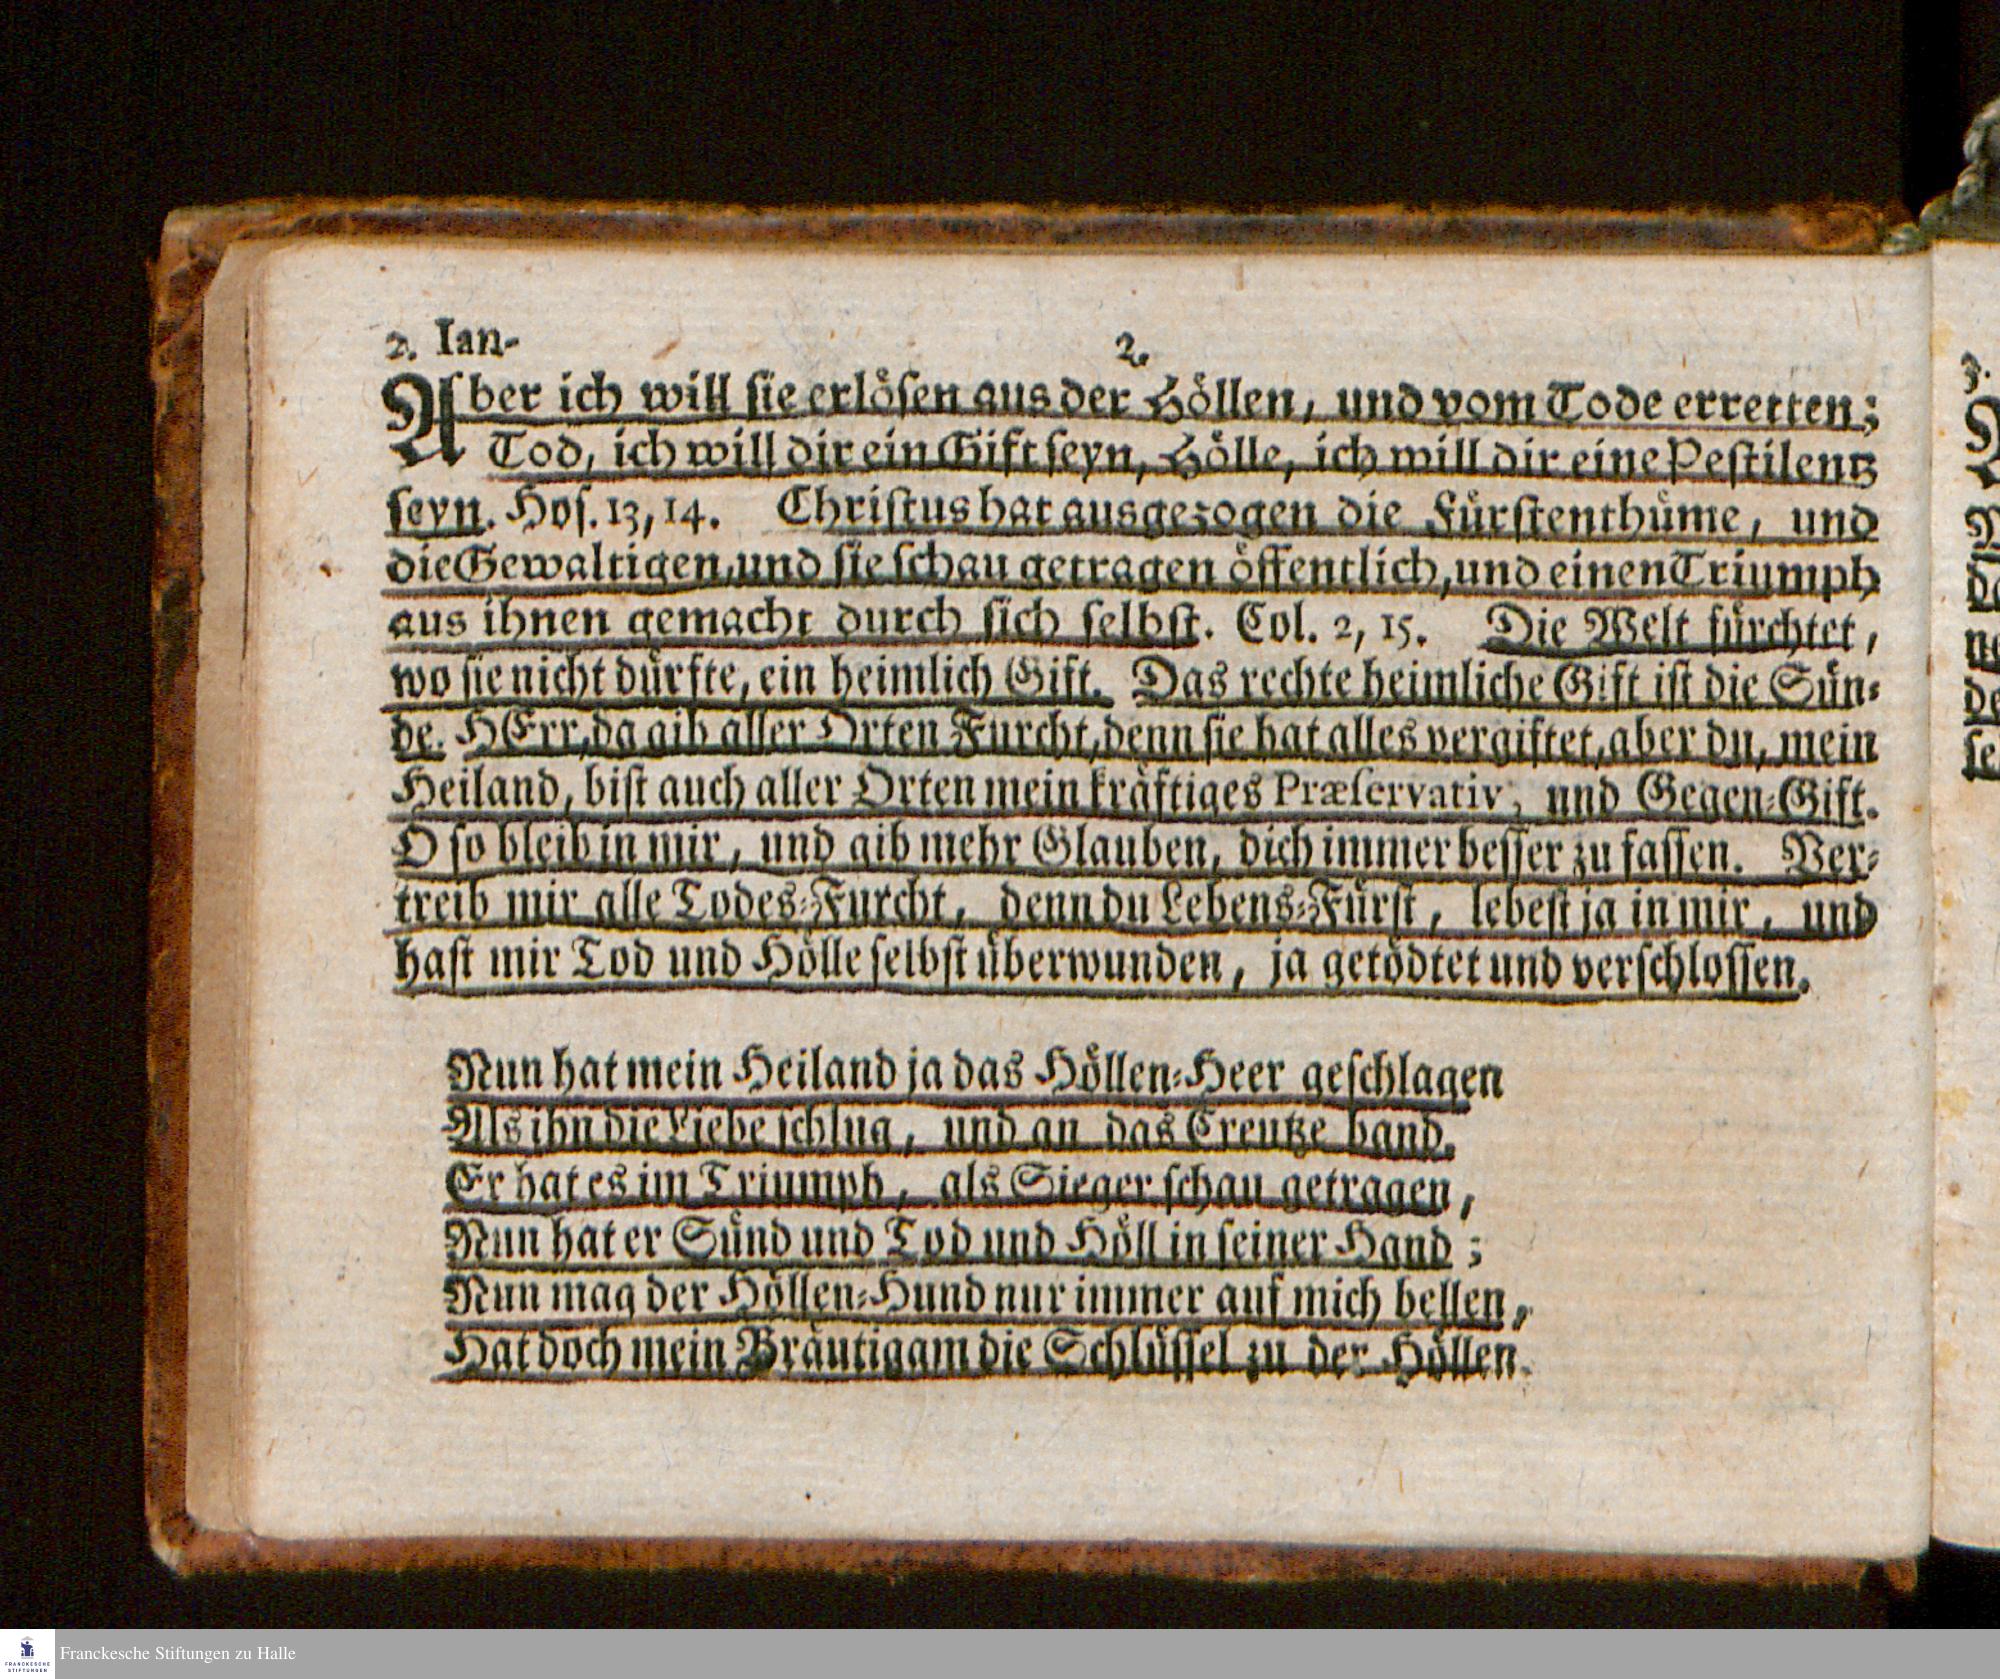 2. Ian- 2.
Aber ich will ſie erlöſen aus der Höllen, und vom Tode erretten;
Tod, ich will dir ein Gift ſeyn, Hölle, ich will dir eine Peſtilentz
ſeyn. Hoſ. 13, 14. Chriſtus hat ausgezogen die Fürſtenthüme, und
die Gewaltigen, und ſie ſchau getragen öffentlich, und einen Triumph
aus ihnen gemacht durch ſich ſelbſt. Col. 2, 15. Die Welt fürchtet,
wo ſie nicht dürfte, ein heimlich Gift. Das rechte heimliche Gift iſt die Sün-
de. HErr, da gib aller Orten Furcht, denn ſie hat alles vergiftet, aber du, mein
Heiland, biſt auch aller Orten mein kräftiges Præſervativ, und Gegen-Gift.
O ſo bleib in mir, und gib mehr Glauben, dich immer beſſer zu faſſen. Ver-
treib mir alle Todes-Furcht, denn du Lebens-Fürſt, lebeſt ja in mir, und
haſt mir Tod und Hölle ſelbſt überwunden, ja getödtet und verſchloſſen.
Nun hat mein Heiland ja das Höllen-Heer geſchlagen
Als ihn die Liebe ſchlug, und an das Creutze band.
Er hat es im Triumph, als Sieger ſchau getragen,
Nun hat er Sünd und Tod und Höll in ſeiner Hand;
Nun mag der Höllen-Hund nur immer auf mich bellen,
Hat doch mein Bräutigam die Schlüſſel zu der Höllen.
3.
FRANCKESCHE
STIFTUNGEN
Franckesche Stiftungen zu Halle